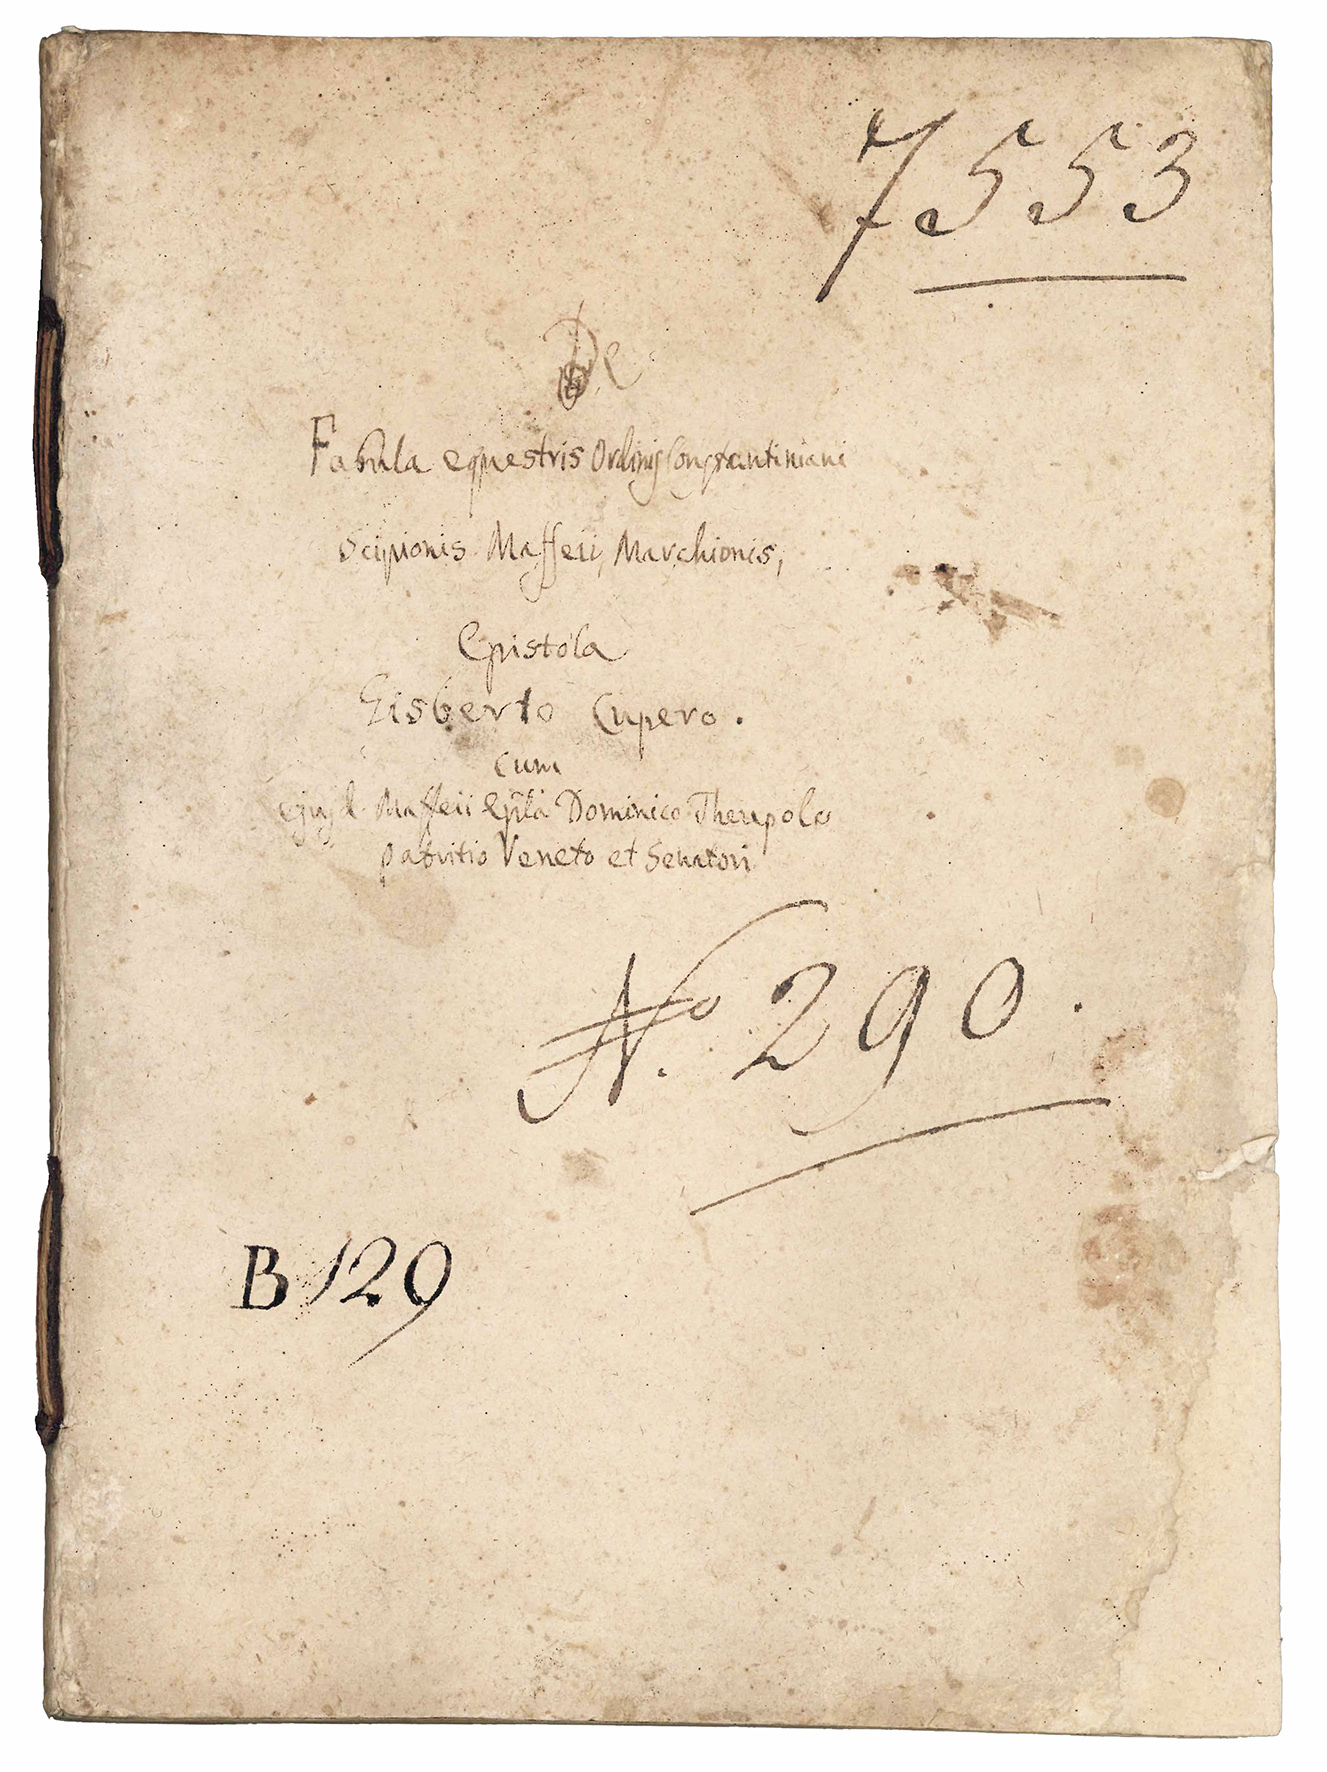 7553
De
Fabula equestris Ordinis Constantiniani
Scipionis Maffeii, Marchionis,
Epistola
Gisberto Cupero.
cum
ejusd. Maffeii Epla Dominico Theupolo
patritio Veneto et Senatori
No. 290.
B 129